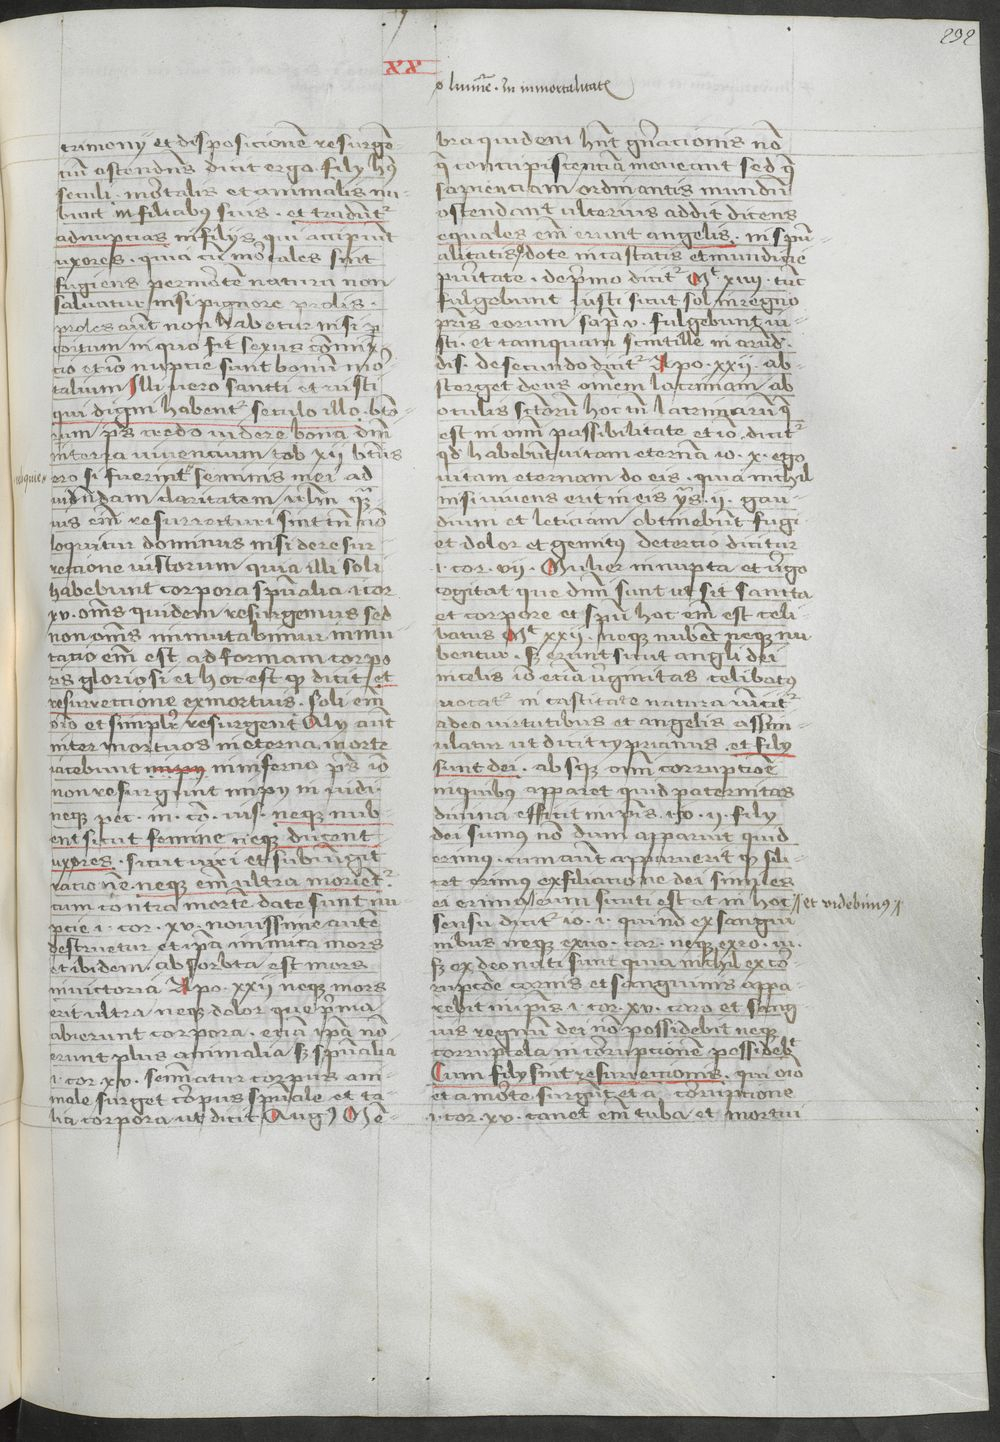 292
XX
o lumīe · In inmortalitate
trimonij et disposicionē resurgē
tiū ostendēs dicit ergo fily hui9
seculi · mortalis et animalis nu-
bunt in filiabus suis · et tradūt2
ad nuptias in filijs qui accipiūt
uxores · quia cū mortales sint
fugiens per mortē natura non
saluatur nisi pignore prolis ·
proles autē non habetur nisi p
coitum in quo fit sexus cōmix-
cio et io nuptie sunt bonum mor
talium Illi vero sancti et iusti
qui digni habent2 seculo illo bto-
rum ps credo videre bona dni
in terra uiuencium tob xii btus
ero si fuerint reliquie seminis mei ad
uidendam claritatem
uis em̄ resurrecturi sint tn̄ nō
loquitur dominus nisi de resur
rectione iustorum quia illi soli
habebunt corpora spūalia 1 cor
xv · omēs quidem resurgemus sed
non omēs inmutabimur inmu
tatio em̄ est ad formam corpo
ris gloriosi et hoc est qd dicit et
resurrectione ex mortuis · soli em̄
oīo et simplr resurgent Aly aut
inter mortuos in eterna morte
iacebunt in inferno ps io
non resurgunt impij in iudi ·
neqz pec · in · co · ius · neqz nub-
ent sicut femine neqz ducent
uxores · sicut uiri et subiūgit
rationē · neqz em̄ ultra moriēt2
cum contra mortē date sunt nu
ptie 1 · cor · xv · nouissime autē
destruetur et ipā inimica mors
et ibidem · absorbta est mors
in uictoria Apo · xxii neqz mors
erit ultra neqz dolor que pma
abierunt corpora · etiā ipā nō
erunt plus animalia sz spūalia
1 · cor · xv · seminatur corpus ani
male surget corpus spūale et ta-
lia corpora ut dicit Aug9
bra quidem hnt gnacionis nō
q concupiscentiā moueant sed q
sapientiam ordinantis mundū
ostendant ulterius addit dicens
equales em̄ erunt angelis · in spū-
alitatis dote in castatis et mundicie
puritate · de primo dicit2 Mt xiii · tūc
fulgebunt iusti sicut sol in regno
pris eorum sap v · fulgebunt iu-
sti · et tamquam scintille in arūd ·
dis · de secundo dicit2 Apo · xxii · ab-
sterget deus omēm lacrimam ab
oculis sctorū hoc in lacrimarū q
est in omi passibilitate et io · dicit2
qd habebūt uitam eternā io · x · ego
uitam eternam do eis · quia nichil
nisi uiuens erit in eis ys · ii · gau-
dium et leticiam obtinebūt fugi
et dolor et gemitus de tercio dicitur
1 · cor · vii · Mulier innupta et virgo
cogitat que dni sunt ut sit sancta
et corpore et spū hoc em̄ est celi
batus Mt xxii · neqz nubēt neqz nu
bentur · sz erunt sicut angli dei
in celis io etiā uirginitas celibatus
uocat2 in castitate natura uincit2
adeo uirtutibus et angelis assim
ulatur ut dicit cyprianus · et fily
sunt dei · absqz omi corruptioē
in quibus apparet quid paternitas
diuina efficit in ipis 1 · io · ii · fily
dei sumus nō dum apparuit quid
erimus · cum autē apparuerit qd sili-
cet erimus ex filiatione dei similes
ei erim9 eum sicuti est et in hoc // et videbimus //
sensu dicit2 io · i · qui nō ex sangui
nibus neqz ex uo · car · neqz ex uo · ui ·
sz ex deo nati sunt quia nichil ex cor
ruptōe carnis et sanguinis appa-
rebit in ipis 1 · cor · xv · caro et sang
uis regnū dei nō possidebit neqz
corruptela incorruptionē possidebt
Cum fily sint resurrectionis · qui oīo
et a morte surgūt et a corruptione
1 · cor · xv · canet em̄ tuba et mortui